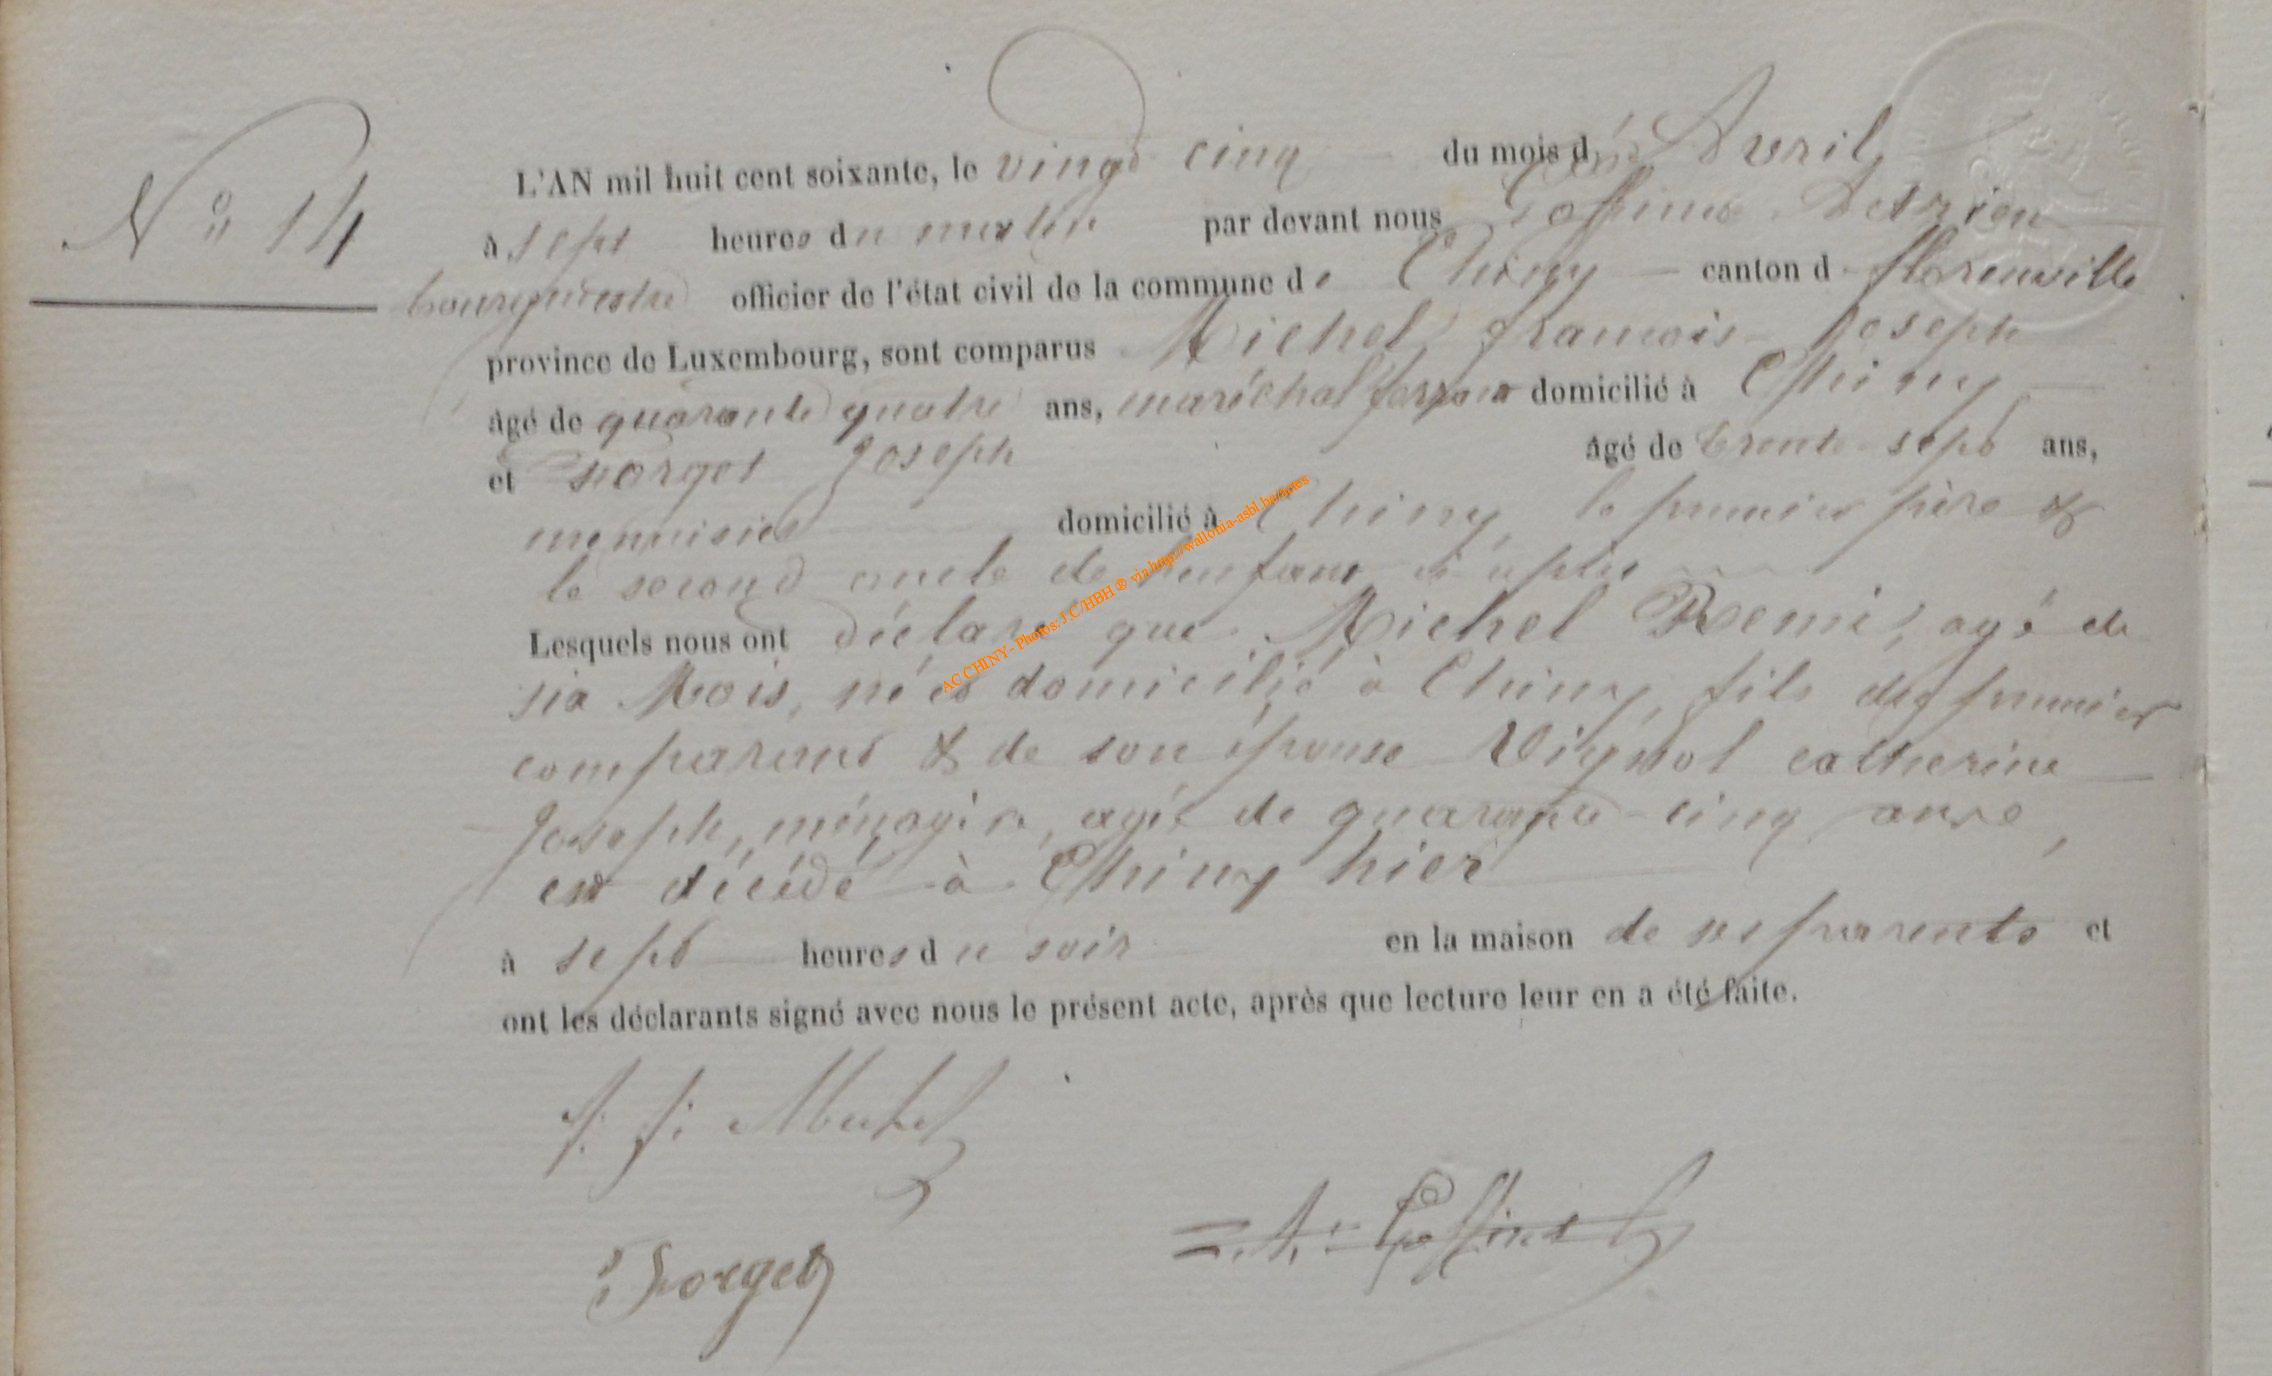 N° 14
L'AN mil huit cent soixante, le vingt cinq du mois d'Avril
à sept heures du matin par devant nous Goffinet
bourgmestre officier de l'état civil de la commune de Chiny canton de florenville
province de Luxembourg, sont comparus Michel francois Joseph
âgé de quarante quatre ans, maréchal ferrant domicilié à Chiny
et Forget Joseph âgé de trente-sept ans,
menuisier domicilié à Chiny, le premier père &
le second oncle de l'enfant ci après
Lesquels nous ont déclaré que Michel Remi, agé de
six Mois, né et domicilié à Chiny, fils du premier
comparant & de son épouse catherine
Joseph, ménagère, agée de quarante-cinq ans,
est décédé à Chiny hier
à sept heures du soir en la maison de ses parents et
ont les déclarants signé avec nous le présent acte, après que lecture leur en a été faite.
f. j. Michel
Forget
A. Goffinet
AC CHINY- Photos: J.C/HBH ® via http://wallonia-asbl.be/actes